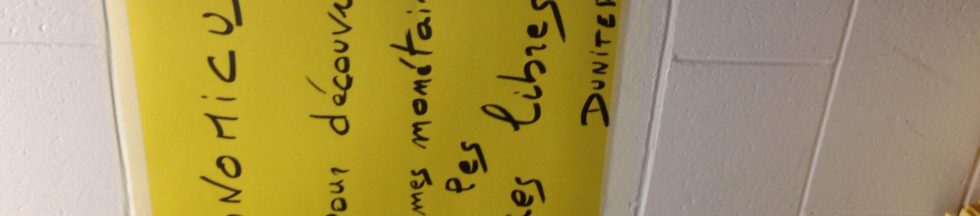 NOMICU
our découvr
mes monétai
les
es libres
DUNITER